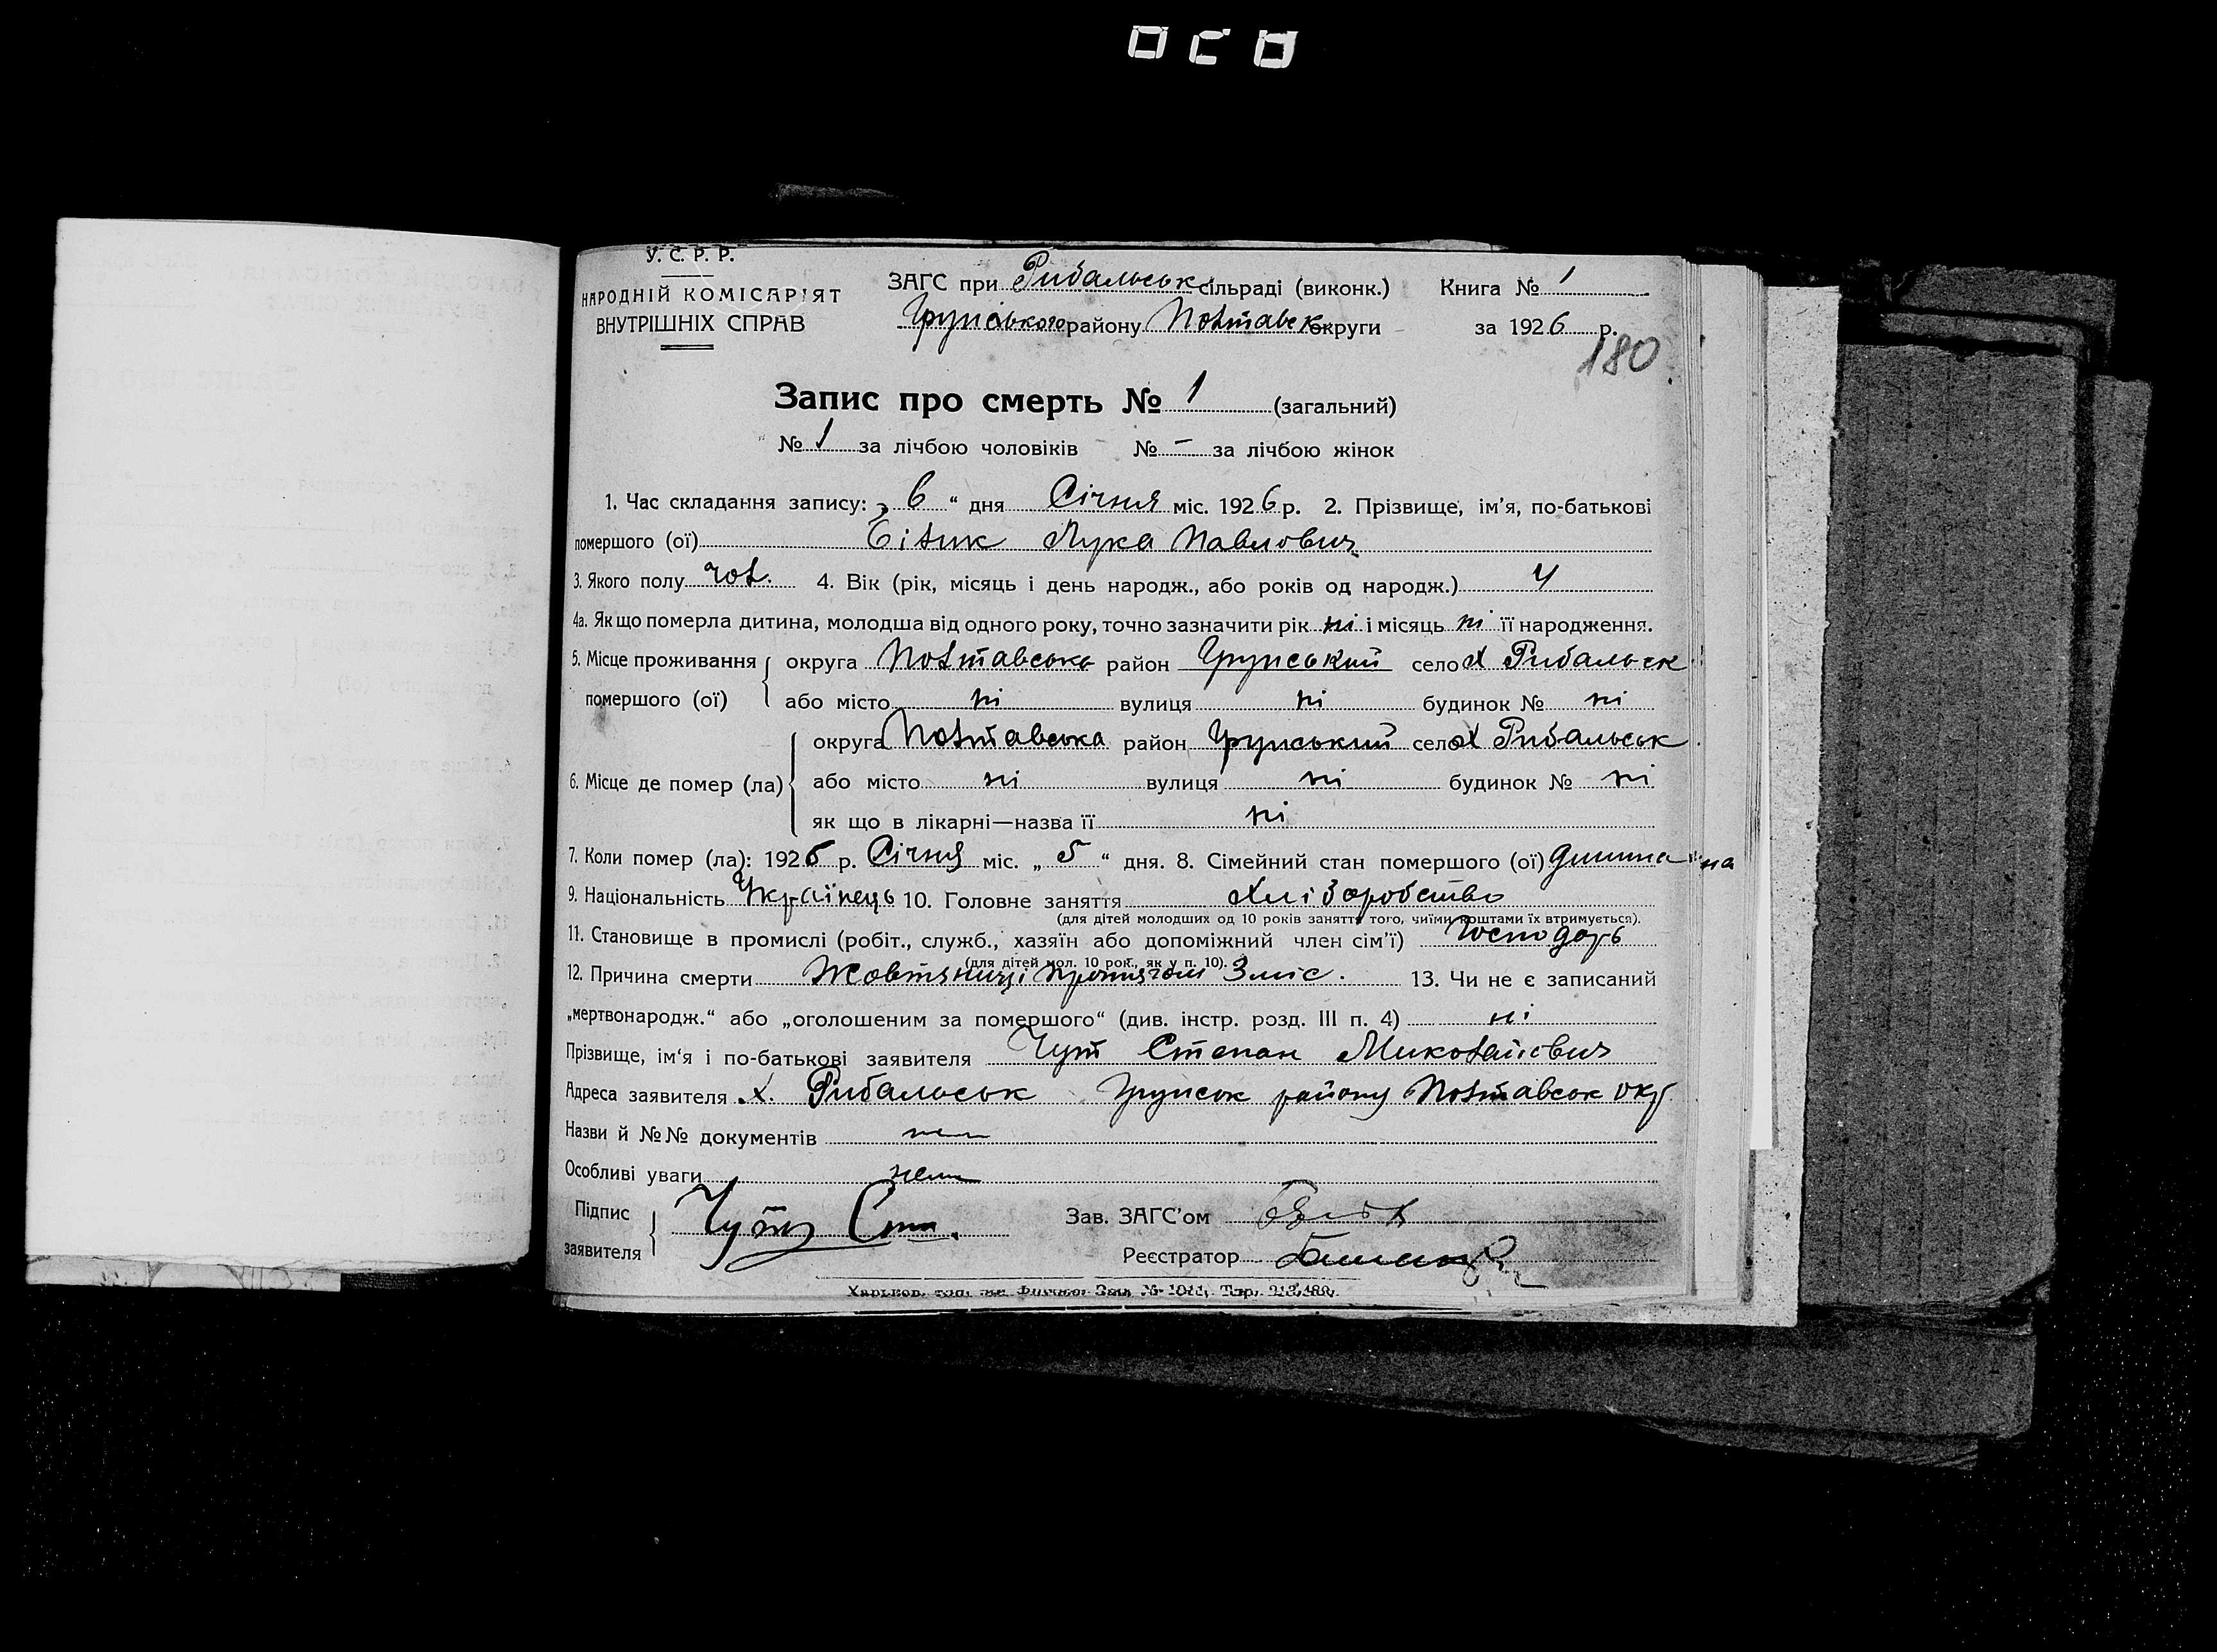 У. С. Р. Р.
НАРОДНІЙ КОМІСАР'ЯТ
ВНУТРІШНІХ СПРАВ
ЗАГС при Рибальськ сільраді (виконк.) Книга № 1
Грунського району Полтавськ округи за 1926 р.
180
Запис про смерть № 1 (загальний)
№ 1 за лічбою чоловіків № – за лічбою жінок
1. Час складання запису: „ 6 “ дня Січня міс. 1926 р. 2. Прізвище, ім'я, по-батькові
помершого (ої) Білик Лука Павлович
3. Якого полу чол. 4. Вік (рік, місяць і день народж., або років од народж.) 4
4а. Як що померла дитина, молодша від одного року, точно зазначити рік ні і місяць ні її народження.
5. Місце проживання помершого (ої) округа Полтавська район Грунський село х Рибальськ
або місто ні вулиця ні будинок № ні
6. Місце де помер (ла) округа Полтавська район Грунський село х Рибальськ
або місто ні вулиця ні будинок № ні
як що в лікарні—назва її ні
7. Коли помер (ла): 1926 р. Січня міс. „ 5 “ дня. 8. Сімейний стан помершого (ої) дитина
9. Національність Українець 10. Головне заняття Хліборобство
(для дітей молодших од 10 років заняття того, чиїми коштами їх втримується).
11. Становище в промислі (робіт., служб., хазяїн або допоміжний член сім'ї) Господарь
(для дітей мол. 10 рок., як у п. 10).
12. Причина смерти Жовтяниці протягом 3 міс. 13. Чи не є записаний
„мертвонародж.“ або „оголошеним за помершого“ (див. інстр. розд. III п. 4) ні
Прізвище, ім'я і по-батькові заявителя Чут Степан Миколаєвич
Адреса заявителя х. Рибальськ Грунськ району Полтавськ окр
Назви й №№ документів нем
Особливі уваги нем
Підпис заявителя Чут Сте.
Зав. ЗАГС'ом
Реєстратор